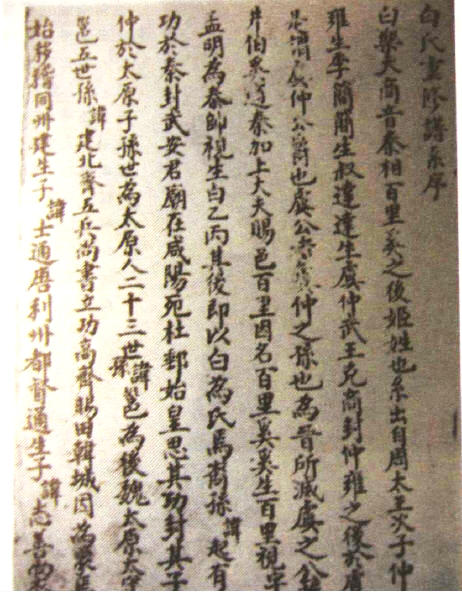 白氏重修譜系序
白與大商音秦相百里奚之後姬姓也系出自周太王次子仲
雍生季簡簡生叔達達生虞仲武王克商封仲雍之後於虞
是謂虞仲公爵也虞公者虞仲之孫也為晉所滅虞之公
井伯奚適秦加上大夫賜邑百里因名百里奚奚生百里視字
孟明為秦帥視生白乙丙其後即以白為氏焉裔孫諱起有
功於秦封武安君廟在咸陽死杜郵始皇思其功封其子
仲於太原子孫世為太原人二十三世孫諱邕為後魏太原太守
邕五世孫諱建北齊五兵尚書立功高齊賜田韓城因為
始移籍同州建生子諱士通唐利州都督通生子諱志善尚衣